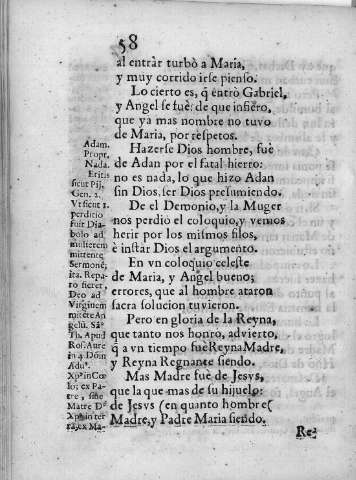 58
al entrar turbò a Maria,
y muy corrido irse pienso.
Lo cierto es, q̃ entrò Gabriel,
y Angel se fuè: de que infiero,
que ya mas nombre no tuvo
de Maria, por respetos.
Hazerse Dios hombre, fuè
de Adan por el fatal hierro:
no es nada, lo que hizo Adan
sin Dios, ser Dios presumiendo.
De el Demonio, y la Muger
nos perdiò el coloquio, y vemos
herir por los mismos filos,
è instar Dios el argumento.
En vn coloquio celeste
de Maria, y Angel bueno;
errores, que al hombre ataron
sacra solucion tuvieron.
Pero en gloria de la Reyna,
que tanto nos honrò, advierto,
q̃ a vn tiempo fuè Reyna Madre,
y Reyna Regnante siendo.
Mas Madre fuè de Jesvs,
que la que mas de su hijuelo:
de Jesvs (en quanto hombre(
Madre, y Padre Maria siendo.
Re-
Adam.
Propt.
Nada.
Eritis
sicut Dij,
Gen. 2.
Vt sicut 1.
perditio
fuit Dia-
bolo ad
mulierem
mittente
Sermonē,
ita. Repa-
ro fieret,
Deo ad
Virginem
mitēte An
gelū. Sāᵗ
Th. Apud
Rof. Aure
in 4 Doin
Adu.ᵗ
Xp̃s in Cœ
lo; ex Pa-
tre, sine
Matre Dˢ
Xp̃s in ter
ra, ex Ma-